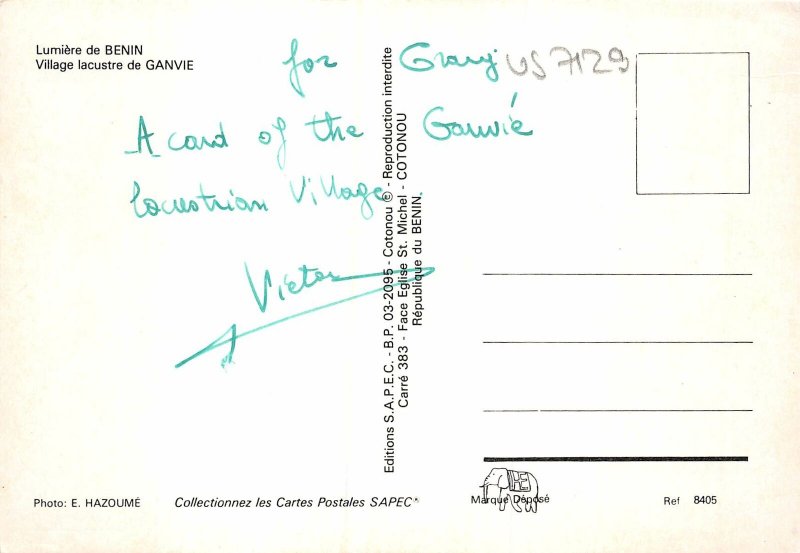 Lumière de BENIN
Village lacustre de GANVIE
for Grany
US7129
A card of the Ganvié
locustrian Village
Victor
Editions S.A.P.E.C. - B.P. 03-2095 - Cotonou © - Reproduction interdite
Carré 383 - Face Eglise St. Michel - COTONOU
République du BENIN.
Photo: E. HAZOUMÉ
Collectionnez les Cartes Postales SAPEC
Marque Déposé
Ref 8405